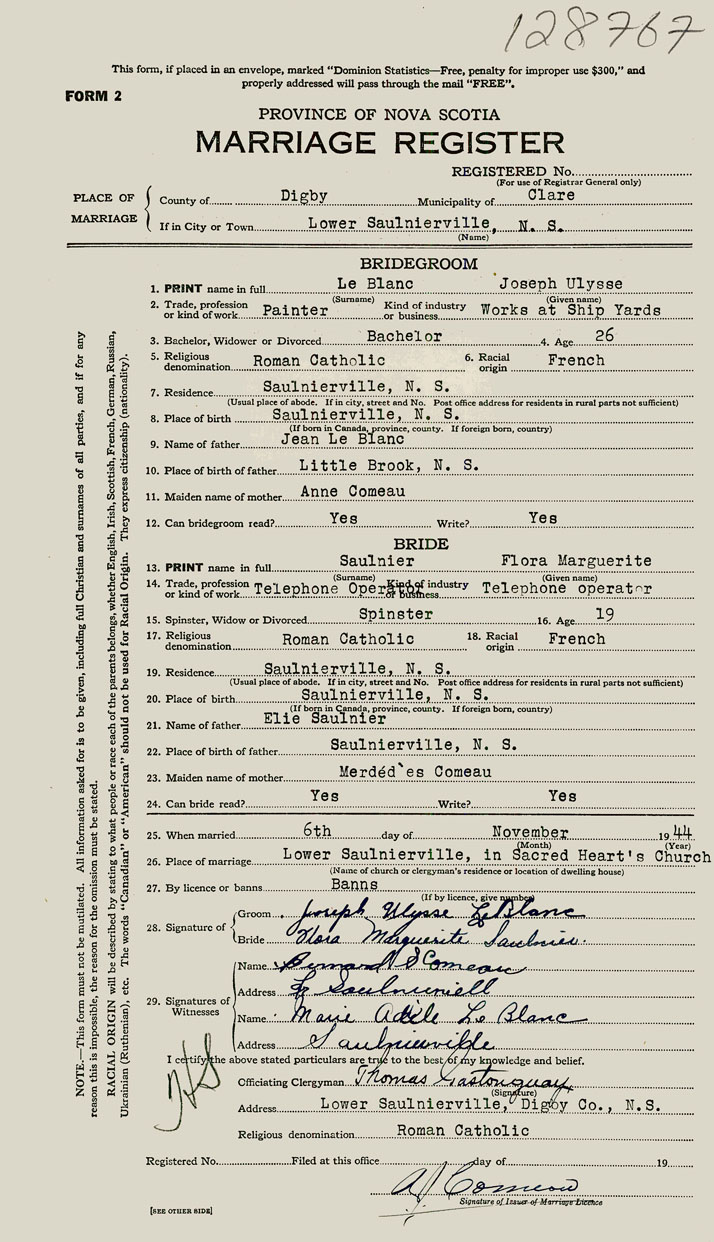 128767
This form, if placed in an envelope, marked “Dominion Statistics—Free, penalty for improper use $300,” and
properly addressed will pass through the mail “FREE”.
FORM 2
PROVINCE OF NOVA SCOTIA
MARRIAGE REGISTER
REGISTERED No.
(For use of Registrar General only)
PLACE OF MARRIAGE
County of Digby Municipality of Clare
If in City or Town Lower Saulnierville, N. S.
(Name)
BRIDEGROOM
1. PRINT name in full Le Blanc Joseph Ulysse
(Surname) (Given name)
2. Trade, profession or kind of work Painter Kind of industry or business Works at Ship Yards
3. Bachelor, Widower or Divorced Bachelor 4. Age 26
5. Religious denomination Roman Catholic 6. Racial origin French
7. Residence Saulnierville, N. S.
(Usual place of abode. If in city, street and No. Post office address for residents in rural parts not sufficient)
8. Place of birth Saulnierville, N. S.
(If born in Canada, province, county. If foreign born, country)
9. Name of father Jean Le Blanc
10. Place of birth of father Little Brook, N. S.
11. Maiden name of mother Anne Comeau
12. Can bridegroom read? Yes Write? Yes
BRIDE
13. PRINT name in full Saulnier Flora Marguerite
(Surname) (Given name)
14. Trade, profession or kind of work Telephone Operator Kind of industry or business Telephone operator
15. Spinster, Widow or Divorced Spinster 16. Age 19
17. Religious denomination Roman Catholic 18. Racial origin French
19. Residence Saulnierville, N. S.
(Usual place of abode. If in city, street and No. Post office address for residents in rural parts not sufficient)
20. Place of birth Saulnierville, N. S.
(If born in Canada, province, county. If foreign born, country)
21. Name of father Elie Saulnier
22. Place of birth of father Saulnierville, N. S.
23. Maiden name of mother Merdéd`es Comeau
24. Can bride read? Yes Write? Yes
25. When married 6th day of November 1944
(Month) (Year)
26. Place of marriage Lower Saulnierville, in Sacred Heart's Church
(Name of church or clergyman's residence or location of dwelling house)
27. By licence or banns Banns
(If by licence, give number)
28. Signature of
Groom Joseph Ulysse LeBlanc
Bride Flora Marguerite Saulnier.
29. Signatures of Witnesses
Name Bernard S Comeau
Address
Name Marie Adèle Le Blanc
Address Saulnierville
I certify the above stated particulars are true to the best of my knowledge and belief.
Officiating Clergyman Thomas Gastonguay
(Signature)
Address Lower Saulnierville, Digby Co., N.S.
Religious denomination Roman Catholic
Registered No. Filed at this office day of 19
A J Comeau
Signature of Issuer of Marriage Licence
[SEE OTHER SIDE]
NOTE.—This form must not be mutilated. All information asked for is to be given, including full Christian and surnames of all parties, and if for any
reason this is impossible, the reason for the omission must be stated.
RACIAL ORIGIN will be described by stating to what people or race each of the parents belongs, whether English, Irish, Scottish, French, German, Russian,
Ukrainian (Ruthenian), etc. The words “Canadian” or “American” should not be used for Racial Origin. They express citizenship (nationality).